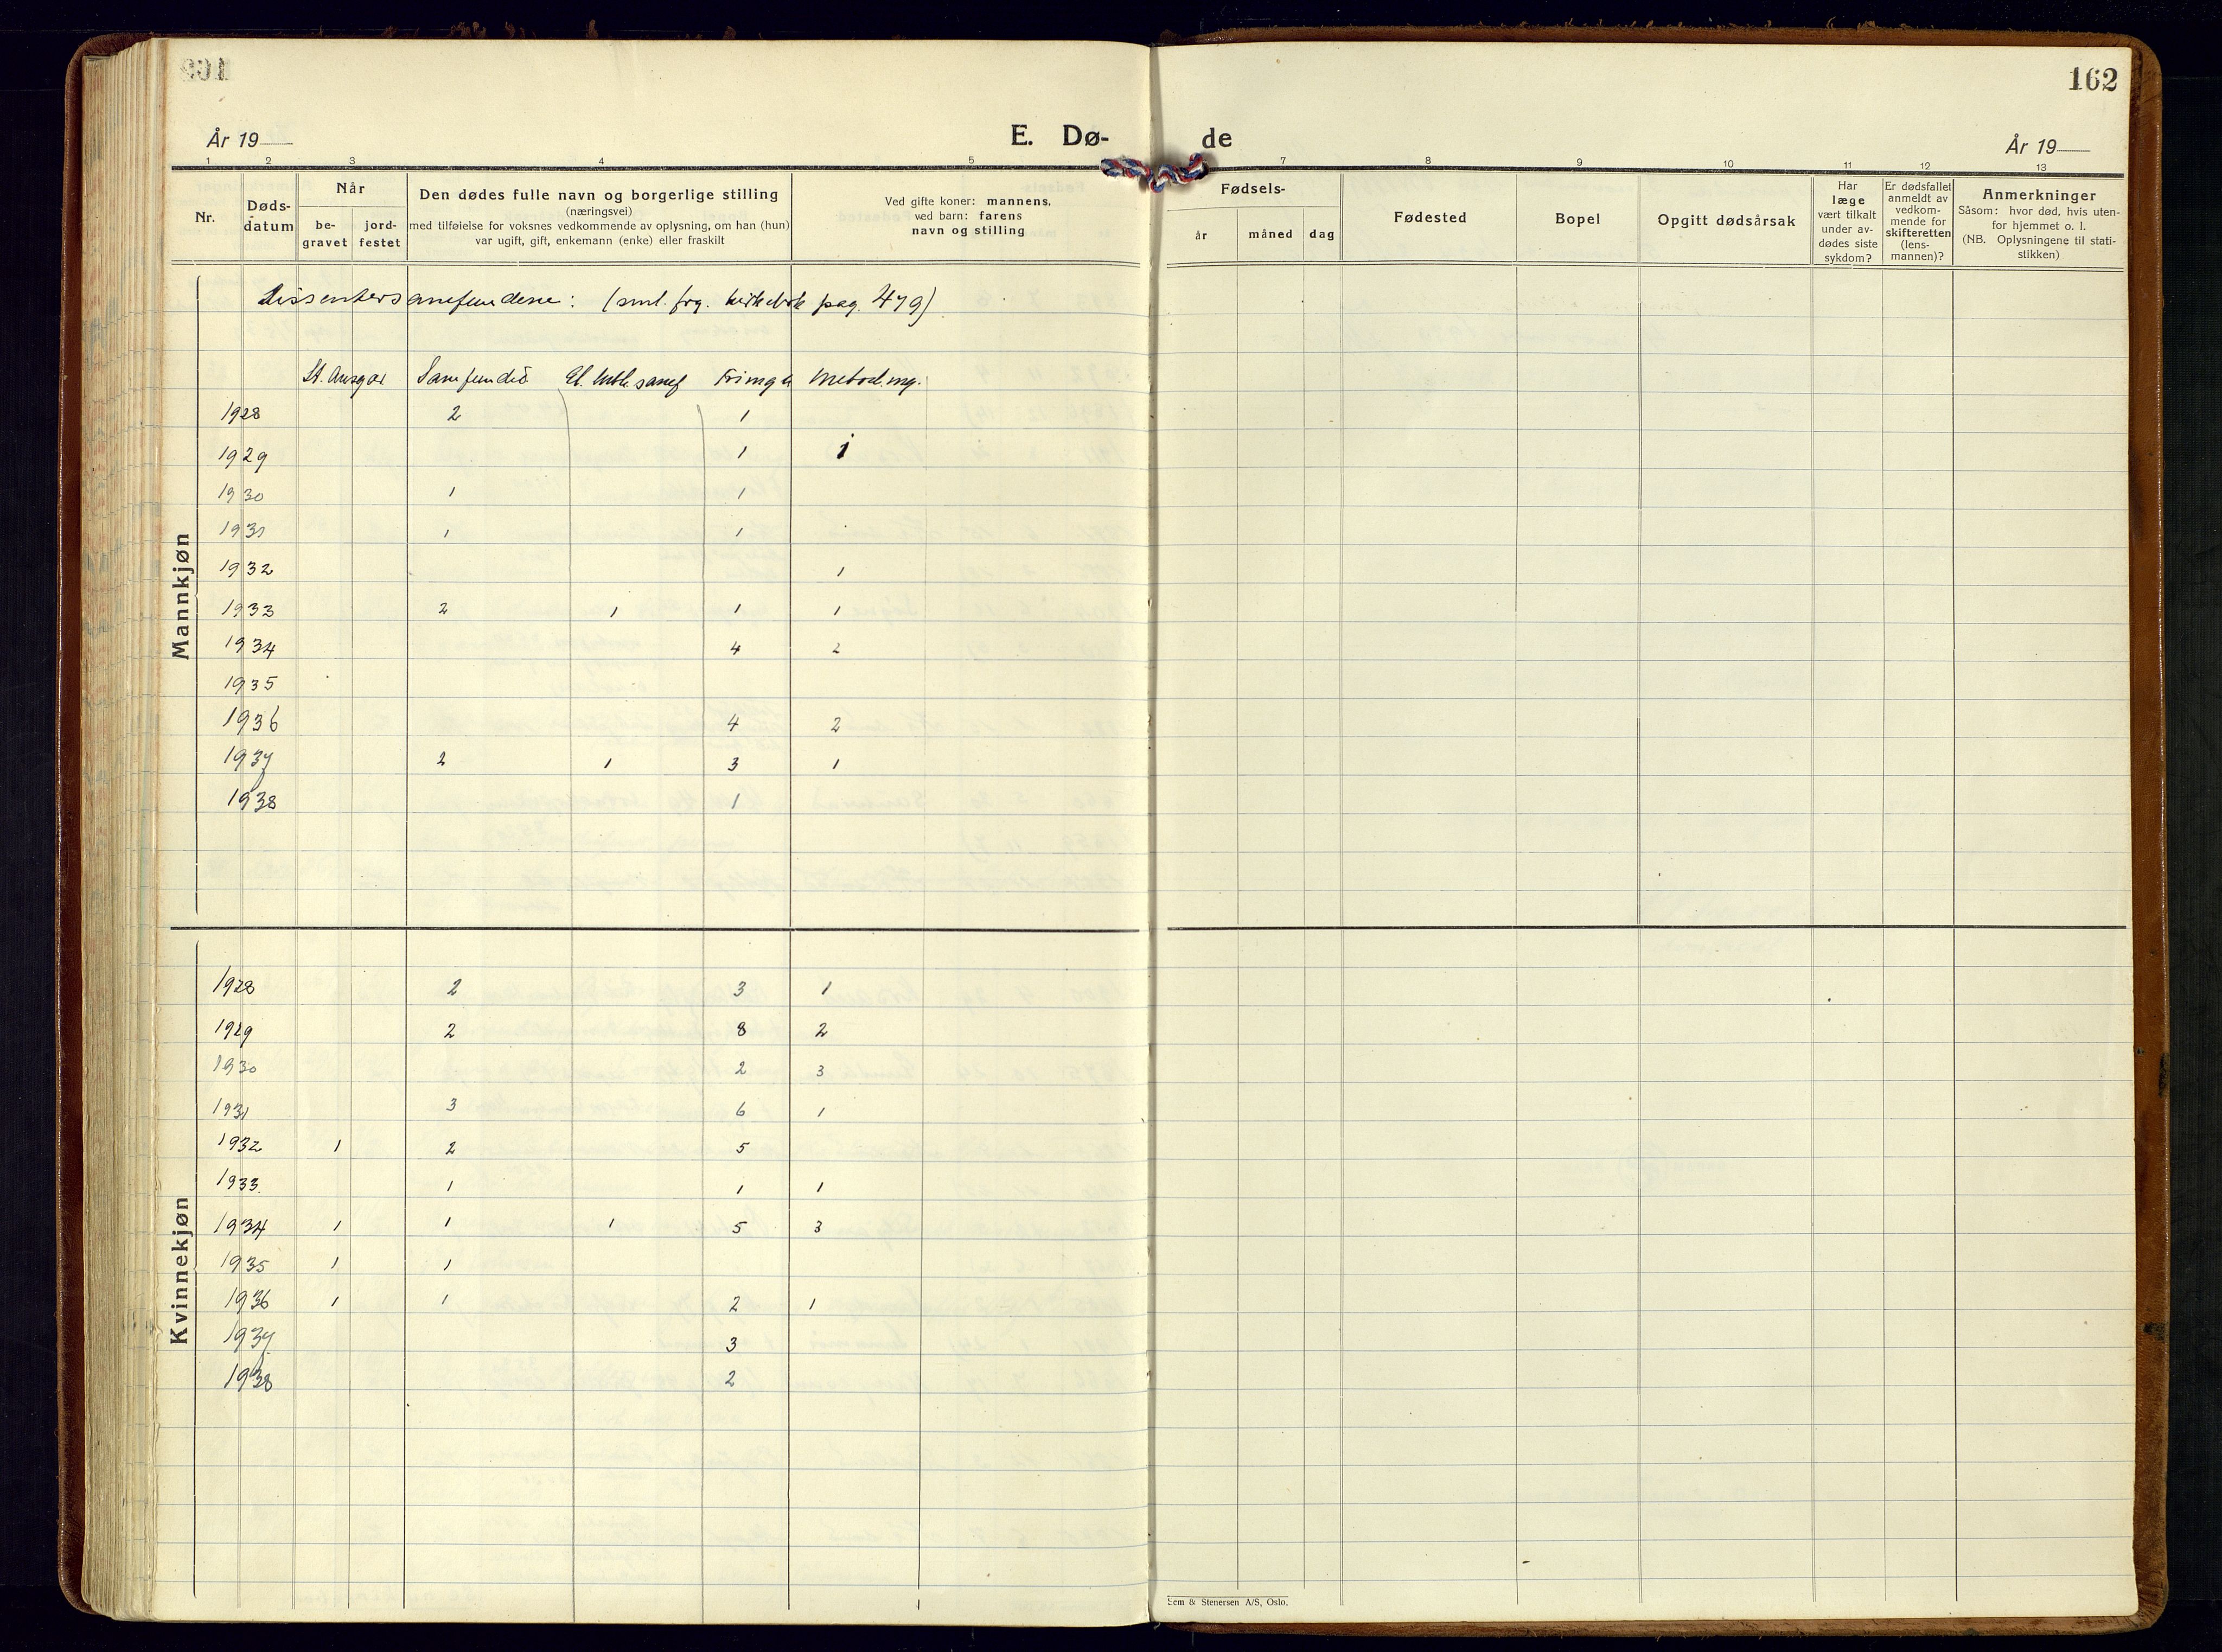 162
År 19
E. Dø- de
År 19
1 2 3 4 5 7 8 9 10 11 12 13
Nr.
Døds-
datum
Når
be-
gravet
jord-
festet
Den dødes fulle navn og borgerlige stilling
(næringsvei)
med tilføielse for voksnes vedkommende av oplysning, om han (hun)
var ugift, gift, enkemann (enke) eller fraskilt
Ved gifte koner: mannens,
ved barn: farens
navn og stilling
Fødsels-
år måned dag
Fødested
Bopel
Opgitt dødsårsak
Har
læge
vært tilkalt
under av-
dødes siste
sykdom?
Er dødsfallet
anmeldt av
vedkom-
mende for
skifteretten
(lens-
mannen)?
Anmerkninger
Såsom: hvor død, hvis uten-
for hjemmet o. l.
(NB. Oplysningene til stati-
stikken)
Mannkjøn
Dissentersamfundene: (sml. frg. kirkebok pag. 479)
St. Ansgar Samfundet Frimgh Metod.mg.
1928 2 1
1929 1 1
1930 1 1
1931 1 1
1932 1
1933 2 1 1 1
1934 4 2
1935
1936 4 2
1937 2 1 3 1
1938 1
Kvinnekjøn
1928 2 3 1
1929 2 8 2
1930 2 3
1931 3 6 1
1932 1 2 5
1933 1 1 1
1934 1 1 1 5 3
1935 1 1
1936 1 1 2 1
1937 3
1938 2
Sem & Stenersen A/S, Oslo.